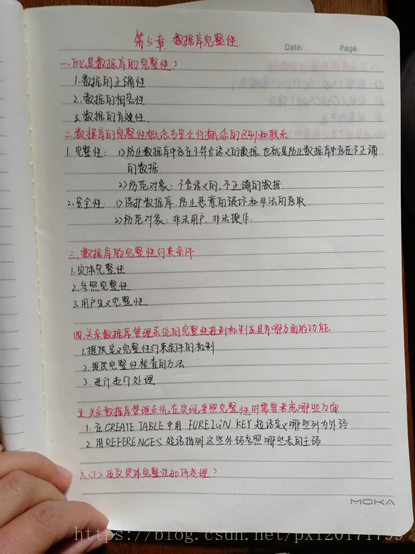 第5章 数据库完整性
Date. Page.
一.什么是数据库的完整性?
1.数据的正确性
2.数据的相容性
3.数据的有效性.
二.数据库的完整性概念与安全性概念的区别和联系
1.完整性: 1)防止数据库中存在不符合语义的数据,也就是防止数据库中存在不正确
的数据
2)防范对象:不合语义的,不正确的数据.
2.安全性: 1)保护数据库,防止恶意的破坏和非法的存取.
2)防范对象:非法用户,非法操作.
三.数据库的完整性约束条件
1.实体完整性
2.参照完整性
3.用户定义完整性
四.关系数据库管理系统的完整性控制机制应具有哪方面的功能
1.提供定义完整性约束条件的机制
2.提供完整性检查的方法
3.进行违约处理
五.关系数据库管理系统在实现参照完整性时需要考虑哪些方面
1.在CREATE TABLE中用 FOREIGN KEY 短语定义哪些列为外码
2.用REFERENCES短语指明这些外码参照哪些表的主码
六.(1)违反实体完整性如何处理?
MOKA
https://blog.csdn.net/px120171759